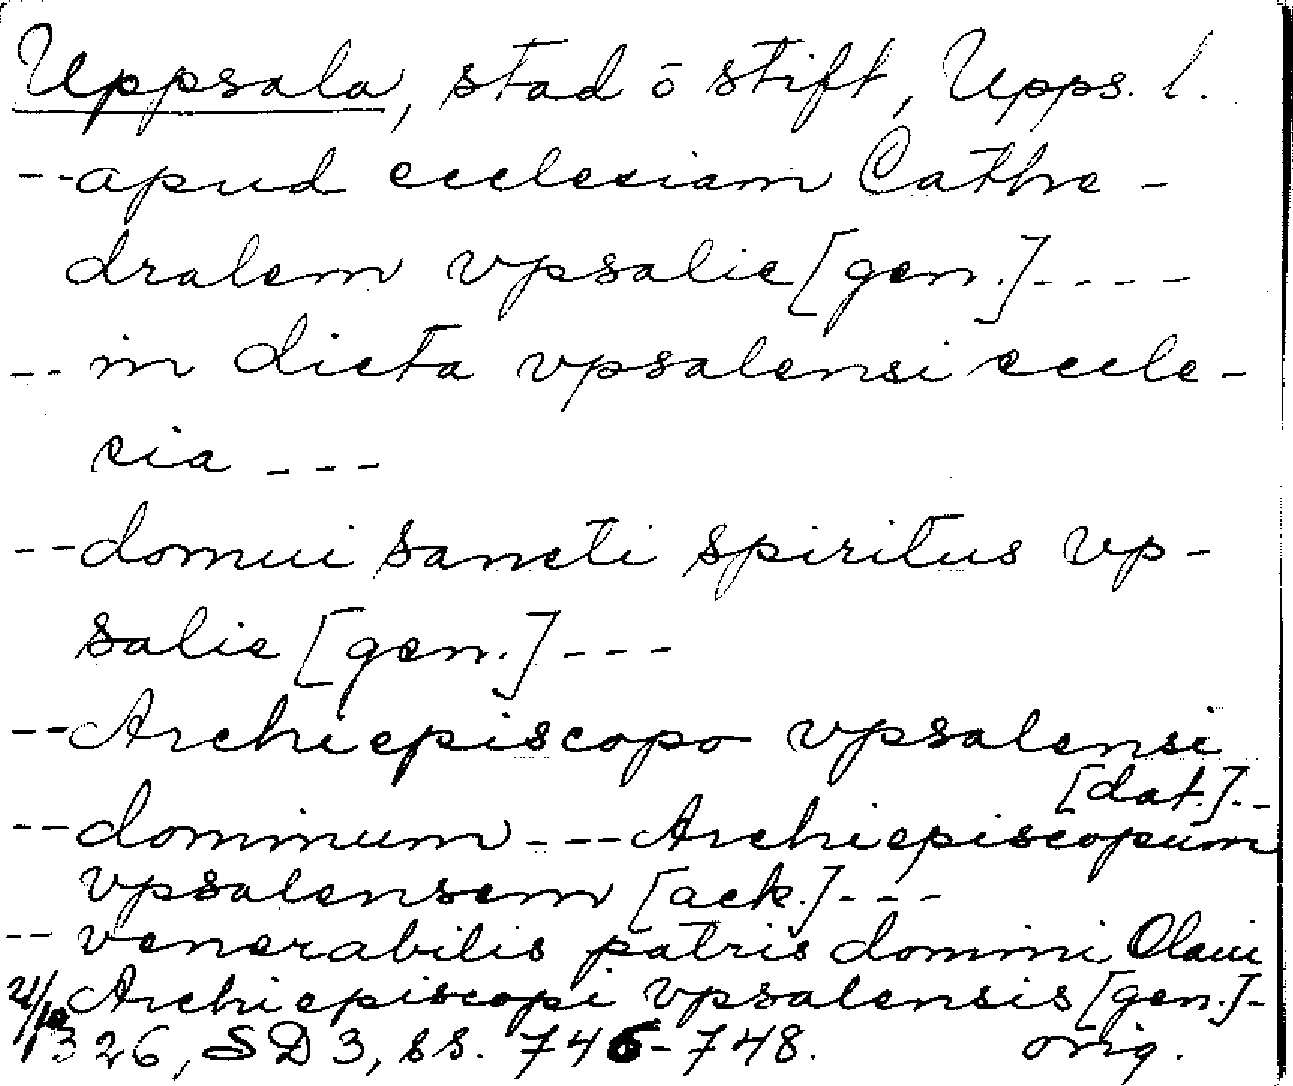 Uppsala, stad o stift, Upps. l.
-- apud ecclesiam Cathe-
dralem vpsalie [gen.] ----
-- in dicta vpsalensi eccle-
sia ---
-- domui sancti spiritus vp-
salie [gen.] ---
-- Archiepiscopo vpsalensi
[dat.] --
-- dominum --- Archiepiscopum
vpsalensem [ack.] ---
-- venerabilis patris domini Olaui
Archiepiscopi vpsalensis [gen.] -
1326, SD 3, ss. 746-748. orig.